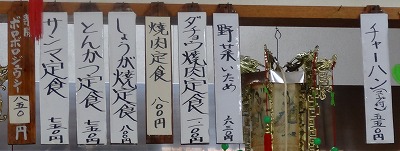 チャーハン(スープ付) 五五〇円
野菜いため 六二〇円
ダチョウ焼肉定食 一二〇〇円
焼肉定食 八〇〇円
しょうが焼定食 八〇〇円
とんかつ定食 七五〇円
サンマ定食 七五〇円
ボロボロジューシー 八五〇円